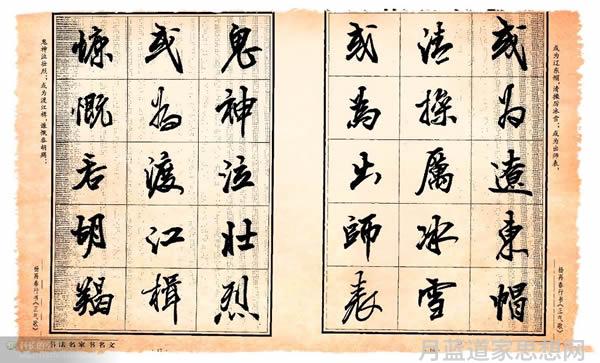 或为辽东帽,清操厉冰雪;或为出师表,
杨再春行书《正气歌》
或為遼東帽
清操厲冰雪
或為出師表
鬼神泣壯烈
或為渡江楫
慷慨吞胡羯
鬼神泣壮烈;或为渡江楫,慷慨吞胡羯;
杨再春行书《正气歌》
书法名家书名文
月蓝道家思想网